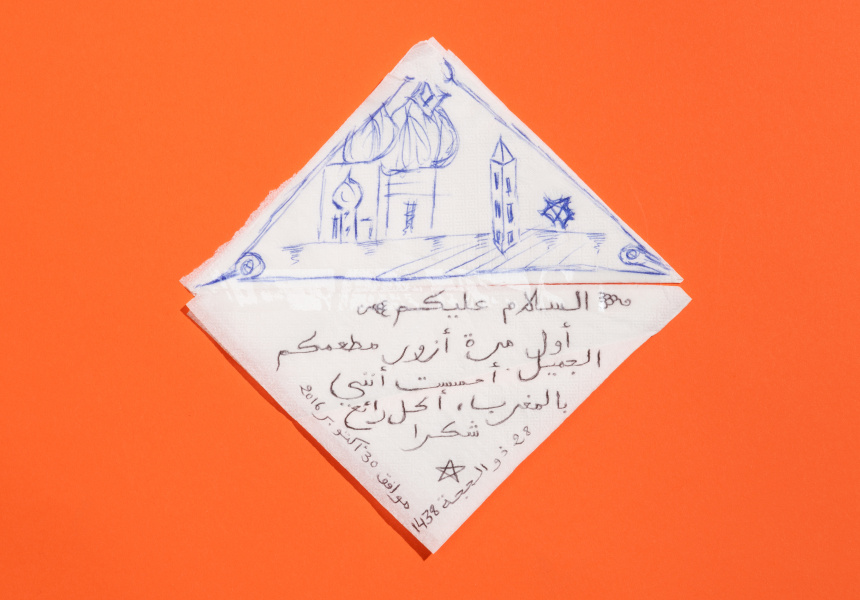 السلام عليكم
أول مرة أزور مطعمكم
الجميل. أحسست أنني
بالمغرب، أكل رائع
شكرا
28 ذو الحجة 1438
موافق 30 أكتوبر 2016